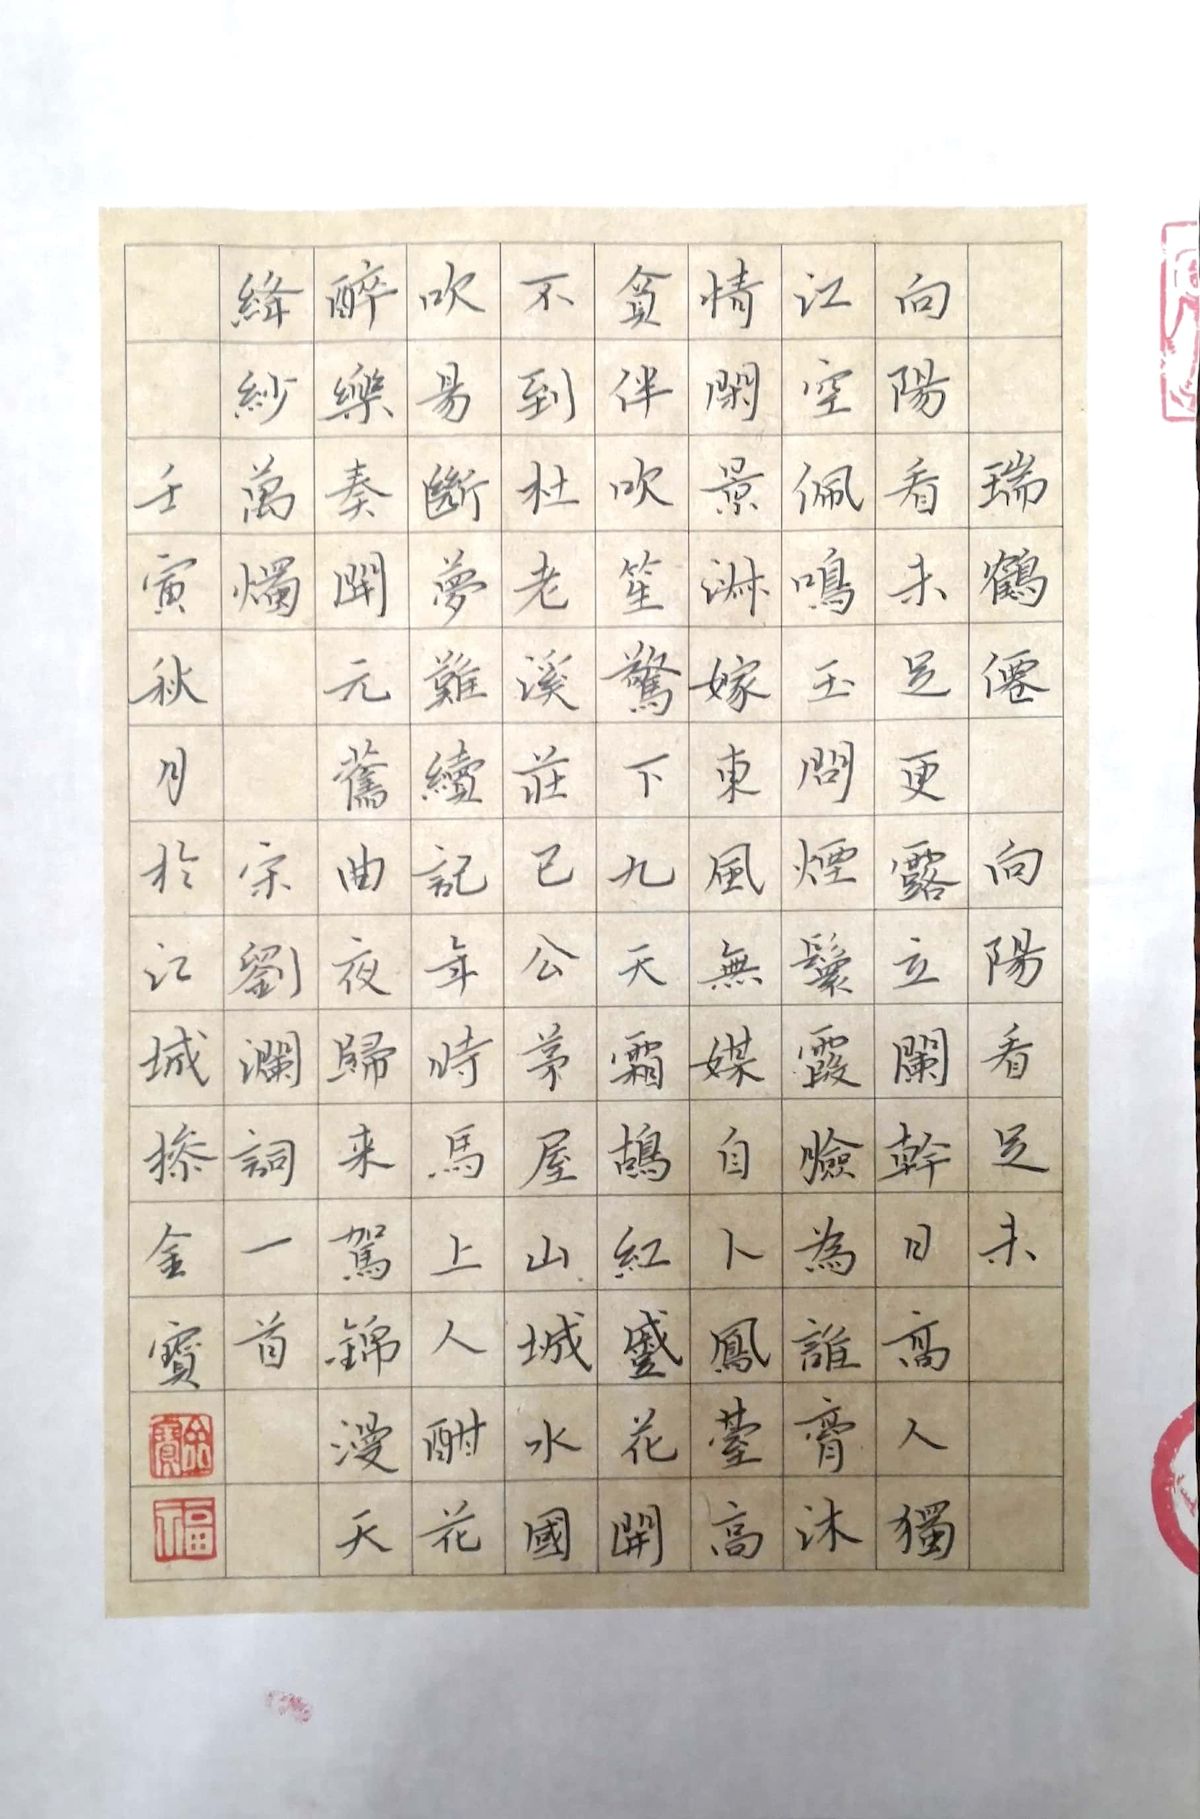 瑞鶴僊 向陽看足未
向陽看未足更露立闌幹日高人獨
江空佩鳴玉問煙鬟霞臉為誰膏沐
情閑景淋嫁東風無媒自卜鳳臺高
貪伴吹笙驚下九天霜鵠紅蹙花開
不到杜老溪莊已公茅屋山城水國
吹昜斷夢難續記年時馬上人酣花
醉樂奏開元舊曲夜歸来駕錦漫天
絳紗萬燭 宋劉瀾詞一首
壬寅秋月於江城搽金寶
金寶
福